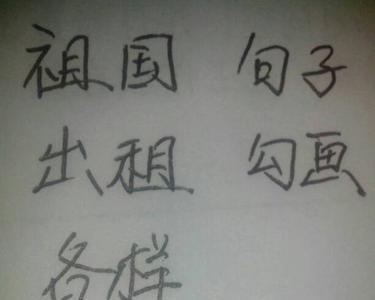 祖国 句子
出租 勾画
各样